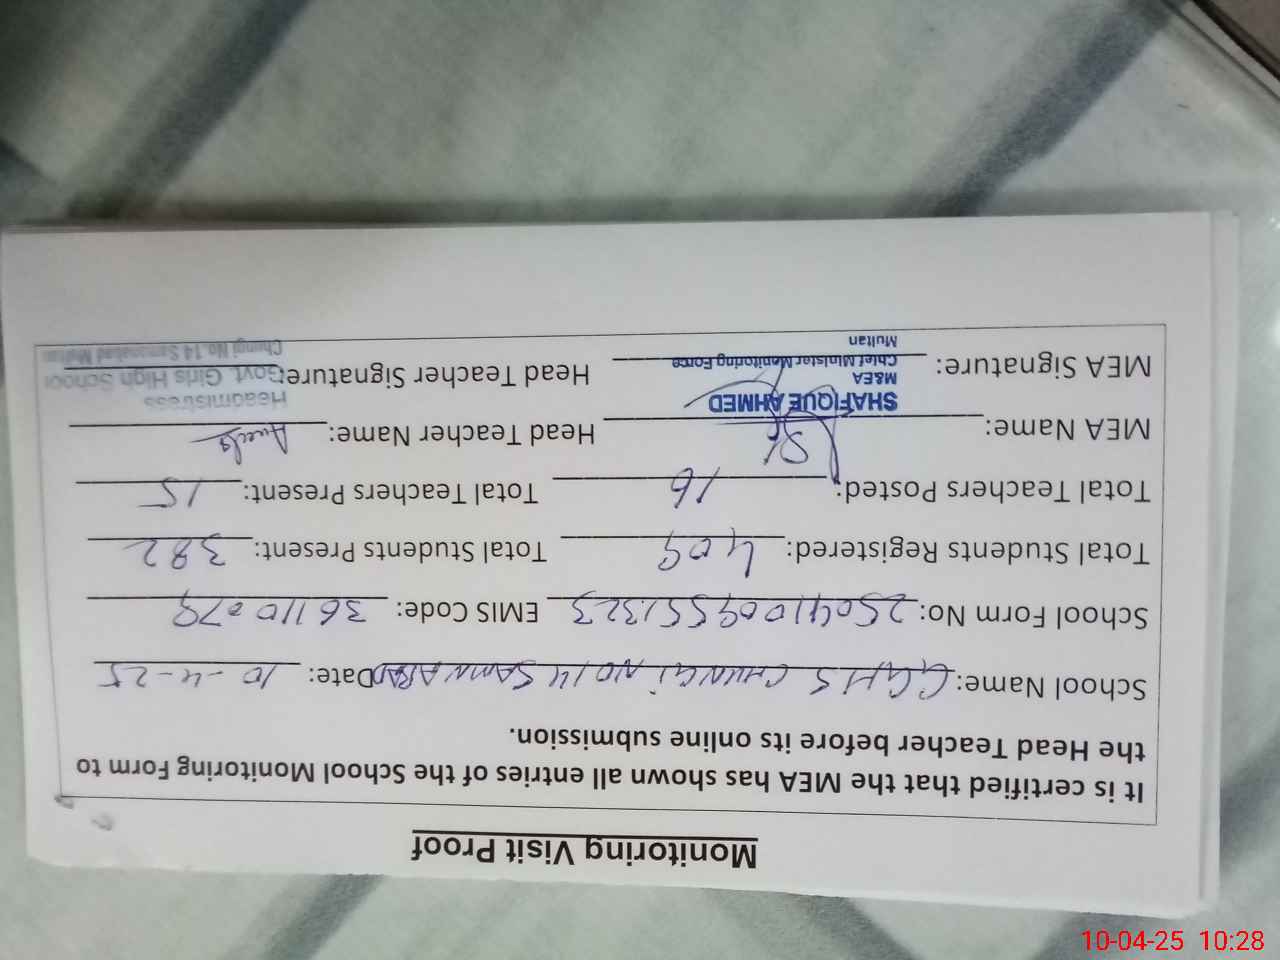 Monitoring Visit Proof
It is certified that the MEA has shown all entries of the School Monitoring Form to
the Head Teacher before its online submission.
School Name: GGHS CHUNGI NO 14 SAMNABAD Date: 10-4-25
School Form No: 25041009551323 EMIS Code: 36110079
Total Students Registered: 409 Total Students Present: 382
Total Teachers Posted: 16 Total Teachers Present: 15
MEA Name: Head Teacher Name:
SHAFIQUE AHMED
M&EA
Chief Minister Monitoring Force
Multan
MEA Signature: Head Teacher Signature:
Headmistress
Govt. Girls High School
Chungi No.14 Samanabad Multan
10-04-25 10:28